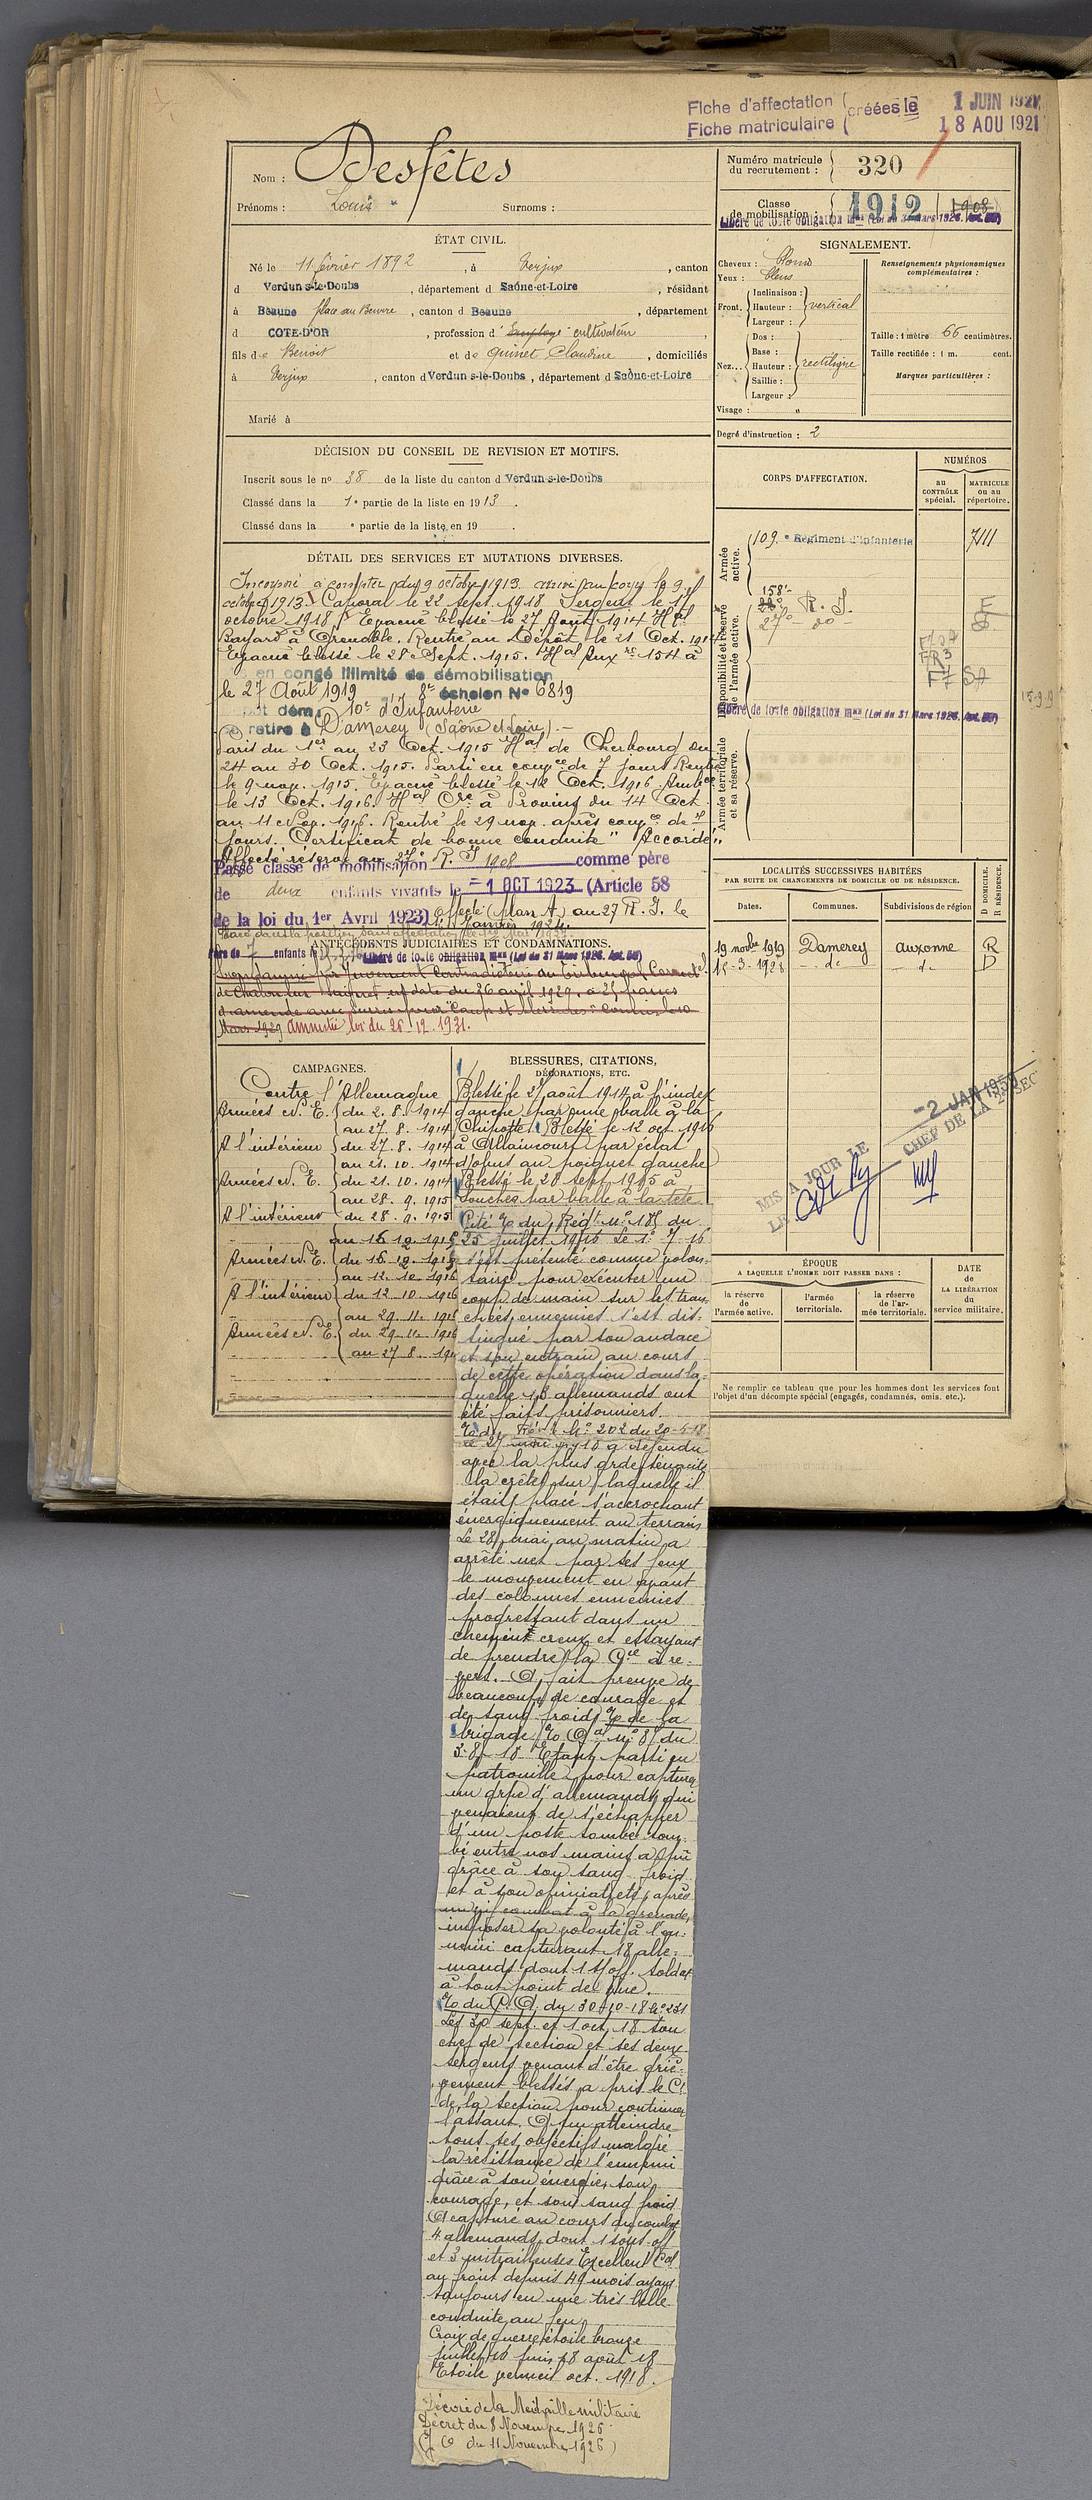 Fiche d'affectation créées le 1 JUIN 1921
Fiche matriculaire 18 AOU 1921
Nom : Desfêtes
Prénoms : Louis Surnoms :
Numéro matricule du recrutement : 320
Classe de mobilisation : 1912 1908
Libéré de toute obligation mre (Loi du 31 Mars 1928. Art. 58)
ÉTAT CIVIL.
Né le 11 février 1892, à Verjux, canton
d Verdun-s-le-Doubs, département d Saône-et-Loire, résidant
à Beaune place au Beurre, canton d Beaune, département
d COTE-D'OR, profession d' Employé cultivateur
fils de Benoit et de Quinet Claudine, domiciliés
à Verjux, canton d Verdun-s-le-Doubs, département d Saône-et-Loire
Marié à
SIGNALEMENT.
Cheveux : blond
Yeux : bleus
Front. Inclinaison : Hauteur : Largeur : vertical
Nez... Dos : Base : Hauteur : Saillie : Largeur : rectiligne
Visage : "
Renseignements physionomiques complémentaires :
Taille : 1 mètre 66 centimètres.
Taille rectifiée : 1 m. cent.
Marques particulières :
Degré d'instruction : 2
DÉCISION DU CONSEIL DE REVISION ET MOTIFS.
Inscrit sous le no 38 de la liste du canton d Verdun-s-le-Doubs
Classé dans la 1e partie de la liste en 1913.
Classé dans la e partie de la liste en 19 .
CORPS D'AFFECTATION.
NUMÉROS
au CONTRÔLE spécial.
MATRICULE ou au répertoire.
Armée active.
109e Régiment d'infanterie 7111
Disponibilité et réserve de l'armée active.
158e R. I.
27e - do -
Libéré de toute obligation mre (Loi du 31 Mars 1928. Art. 58)
Armée territoriale et sa réserve.
DÉTAIL DES SERVICES ET MUTATIONS DIVERSES.
Incorporé à compter du 9 octobre 1913 arrivé au corps le 9
octobre 1913. Caporal le 22 sept. 1918 Sergent le 17
octobre 1918. Evacué blessé le 27 Août 1914 Hal
Bayard à Grenoble. Rentré au Dépôt le 21 Oct. 1914
Evacué blessé le 28 Sept. 1915. Hal Aux re 154 à
en congé illimité de démobilisation
le 27 Août 1919 8e échelon No 6819
dépôt dém. 10e d'Infanterie
se retire à Damerey (Saône et Loire). -
Paris du 1er au 23 Oct. 1915 Hal de Cherbourg du
24 au 30 Oct. 1915. Parti en congé de 7 jours Rentré
le 9 nov. 1915. Evacué blessé le 12 Oct. 1916 Ambce
le 13 Oct. 1916. Hal Cre à Provins du 14 Oct.
au 11 Nov. 1916. Rentré le 29 nov. après congé de 7
jours. Certificat de bonne conduite "Accordé"
Affecté réserve au 27e R. I.
Passé classe de mobilisation 1908 comme père
de deux enfants vivants le -1 OCT 1923 (Article 58
de la loi du 1er Avril 1923) affecté (plan A) au 27 R. I. le
1er janvier 1924.
Père de 7 enfants Libéré de toute obligation mre (Loi du 31 Mars 1928. Art. 58)
ANTÉCÉDENTS JUDICIAIRES ET CONDAMNATIONS.
Condamné par jugement contradictoire du Tribunal Correctel
de Chalon sur Saône en date du 26 avril 1929 à 25 francs
d'amende avec sursis pour "Coups et blessures" commis le 10
Mars 1929 Amnistié loi du 26-12-1931.
LOCALITÉS SUCCESSIVES HABITÉES
PAR SUITE DE CHANGEMENTS DE DOMICILE OU DE RÉSIDENCE.
Dates. Communes. Subdivisions de région D DOMICILE. R RÉSIDENCE.
19 novbre 1919 Damerey Auxonne R
15-3-1928 - do - - do - D
MIS A JOUR LE -2 JAN 1950
LE CHEF DE LA 2e SEC
CAMPAGNES.
Contre l'Allemagne
Armées N. E. du 2. 8. 1914
au 27. 8. 1914
A l'intérieur du 27. 8. 1914
au 21. 10. 1914
Armées N. E. du 21. 10. 1914
au 28. 9. 1915
A l'intérieur du 28. 9. 1915
au 15 12. 1915
Armées N. E. du 15 12. 1915
au 12. 10. 1916
A l'intérieur du 12. 10. 1916
au 29. 11. 1916
Armées N. E. du 29. 11. 1916
au 27. 8. 191
BLESSURES, CITATIONS,
DÉCORATIONS, ETC.
Blessé le 27 août 1914 à l'index
gauche par une balle à la
Chipotte. Blessé le 12 oct. 1916
à Ablaincourt par éclat
d'obus au poignet gauche
Blessé le 28 sept 1915 à
Souchez par balle à la tête
Cité O. du Régt no 185 du
25 juillet 1916 Le 1. 7. 16
s'est présenté comme volon-
taire pour exécuter un
coup de main sur les tran-
chées ennemies s'est dis-
tingué par son audace
et son entrain au cours
de cette opération dans la-
quelle 18 allemands ont
été faits prisonniers.
O. du Régt No 202 du 20-5-18
Le 27 mai 1918 a défendu
avec la plus grde ténacité
la crête sur laquelle il
était placé s'accrochant
énergiquement au terrain
Le 28 mai au matin a
arrêté net par ses feux
le mouvement en avant
des colonnes ennemies
progressant dans un
chemin creux et essayant
de prendre la Cie à re-
vers. A fait preuve de
beaucoup de courage et
de sang froid O de la
brigade O Gal no 8 du
3-8-18 Etant parti en
patrouille pour capturer
un grpe d'allemands qui
venaient de s'échapper
d'un poste tombé tom-
bé entre nos mains a pu
grâce à son sang froid
et à son opiniâtreté, après
un vif combat à la grenade,
imposer sa volonté à l'en-
nemi capturant 18 alle-
mands dont 1 s/off. Soldat
à tout point de vue.
O du C. A. du 30-10-18 No 231
Les 30 sept. et 1 oct. 18 son
chef de section et ses deux
sergents venant d'être griè-
vement blessés a pris le Ct
de la section pour continuer
l'assaut. A pu atteindre
tous ses objectifs malgré
la résistance de l'ennemi
grâce à son énergie, son
courage, et son sang froid
A capturé au cours du combat
4 allemands dont 1 sous-off
et 3 mitrailleuses Excellent Cal
au front depuis 49 mois ayant
toujours eu une très belle
conduite au feu
Croix de guerre étoile bronze
juillet 16 juin 18 août 18
Etoile vermeil oct. 1918.
Décoré de la Médaille militaire
Décret du 8 Novembre 1926
(J O du 11 Novembre 1926)
ÉPOQUE
A LAQUELLE L'HOMME DOIT PASSER DANS :
la réserve de l'armée active.
l'armée territoriale.
la réserve de l'armée territoriale.
DATE de LA LIBÉRATION du service militaire.
Ne remplir ce tableau que pour les hommes dont les services font
l'objet d'un décompte spécial (engagés, condamnés, omis, etc.).